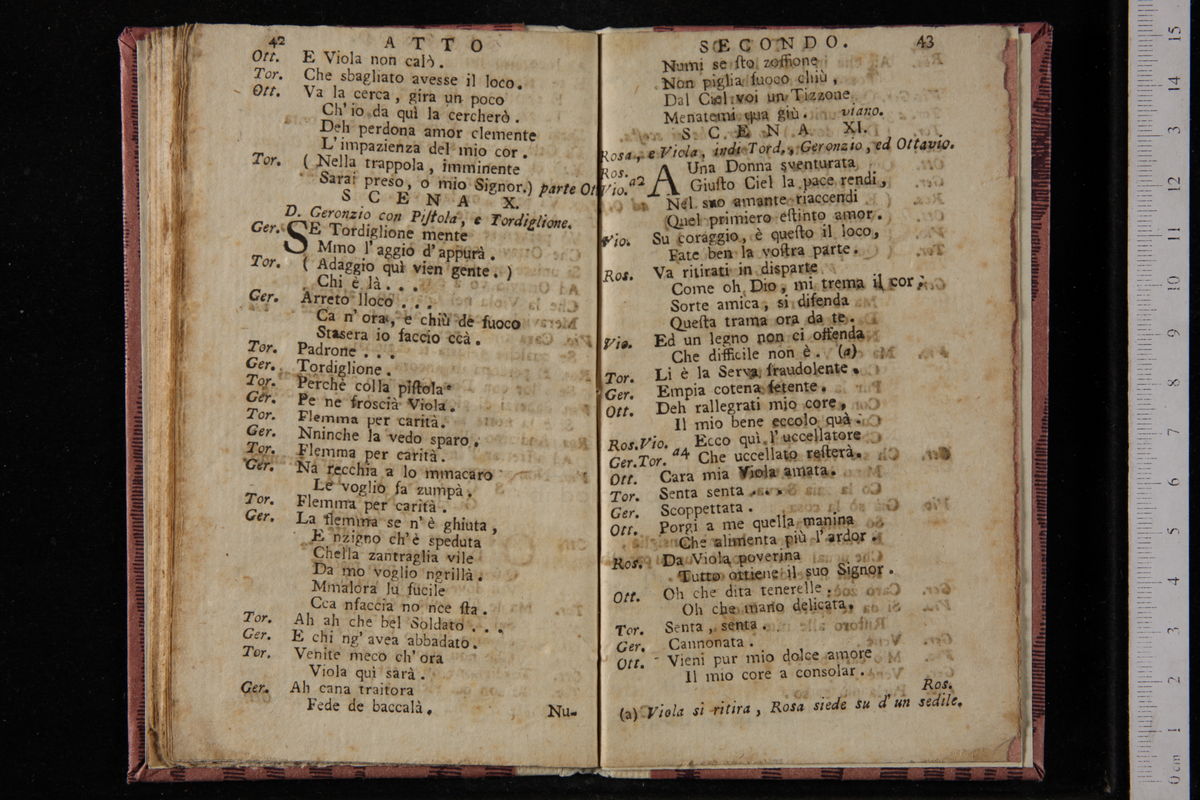 42 ATTO
Ott. E Viola non calò.
Tor. Che sbagliato avesse il loco.
Ott. Va la cerca, gira un poco
Ch'io da quì la cercherò.
Deh perdona amor clemente
L'impazienza del mio cor.
Tor. (Nella trappola, imminente
Sarai preso, o mio Signor.) parte Ott
SCENA X.
D. Geronzio con Piſtola, e Tordiglione.
Ger. SE Tordiglione mente
Mmo l'aggio d'appurà.
Tor. (Adaggio quì vien gente.)
Chi è là...
Ger. Arreto lloco...
Ca n'ora, e chiù de fuoco
Stasera io faccio ccà.
Tor. Padrone...
Ger. Tordiglione.
Tor. Perchè colla piſtola
Ger. Pe ne froscià Viola.
Tor. Flemma per carità.
Ger. Nninche la vedo sparo.
Tor. Flemma per carità.
Ger. Na recchia a lo mmacaro
Le voglio fa zumpà.
Tor. Flemma per carità.
Ger. La flemma se n'è ghiuta,
E nzigno ch'è speduta
Chella zantraglia vile
Da mo voglio ngrillà.
Mmalora lu fucile
Cca nfaccia no nce ſta.
Tor. Ah ah che bel Soldato...
Ger. E chi ng'avea abbadato.
Tor. Venite meco ch'ora
Viola qui sarà.
Ger. Ah cana traitora
Fede de baccalà.
Nu-
SECONDO. 43
Numi se ſto zoffione
Non piglia fuoco chiù,
Dal Ciel voi un Tizzone
Menatemi qua giù. viano.
SCENA XI.
Rosa, e Viola, indi Tord., Geronzio, ed Ottavio.
Ros. Vio. a2 A Una Donna sventurata
Giuſto Ciel la pace rendi,
Nel suo amante riaccendi
Quel primiero eſtinto amor.
Vio. Su coraggio, è queſto il loco,
Fate ben la voſtra parte.
Ros. Va ritirati in disparte
Come oh Dio, mi trema il cor;
Sorte amica, si difenda
Queſta trama ora da te.
Vio. Ed un legno non ci offenda
Che difficile non è. (a)
Tor. Lì è la Serva fraudolente.
Ger. Empia cotena fetente.
Ott. Deh rallegrati mio core,
Il mio bene eccolo quà.
Ros. Vio. Ecco quì l'uccellatore
Ger. Tor. a4 Che uccellato reſterà.
Ott. Cara mia Viola amata.
Tor. Senta senta....
Ger. Scoppettata.
Ott. Porgi a me quella manina
Che alimenta più l'ardor.
Ros. Da Viola poverina
Tutto ottiene il suo Signor.
Ott. Oh che dita tenerelle,
Oh che mano delicata.
Tor. Senta, senta.
Ger. Cannonata.
Ott. Vieni pur mio dolce amore
Il mio core a consolar.
Ros.
(a) Viola si ritira, Rosa siede su d'un sedile.
15
14
13
12
11
10
9
8
7
6
5
4
3
2
1
0 cm